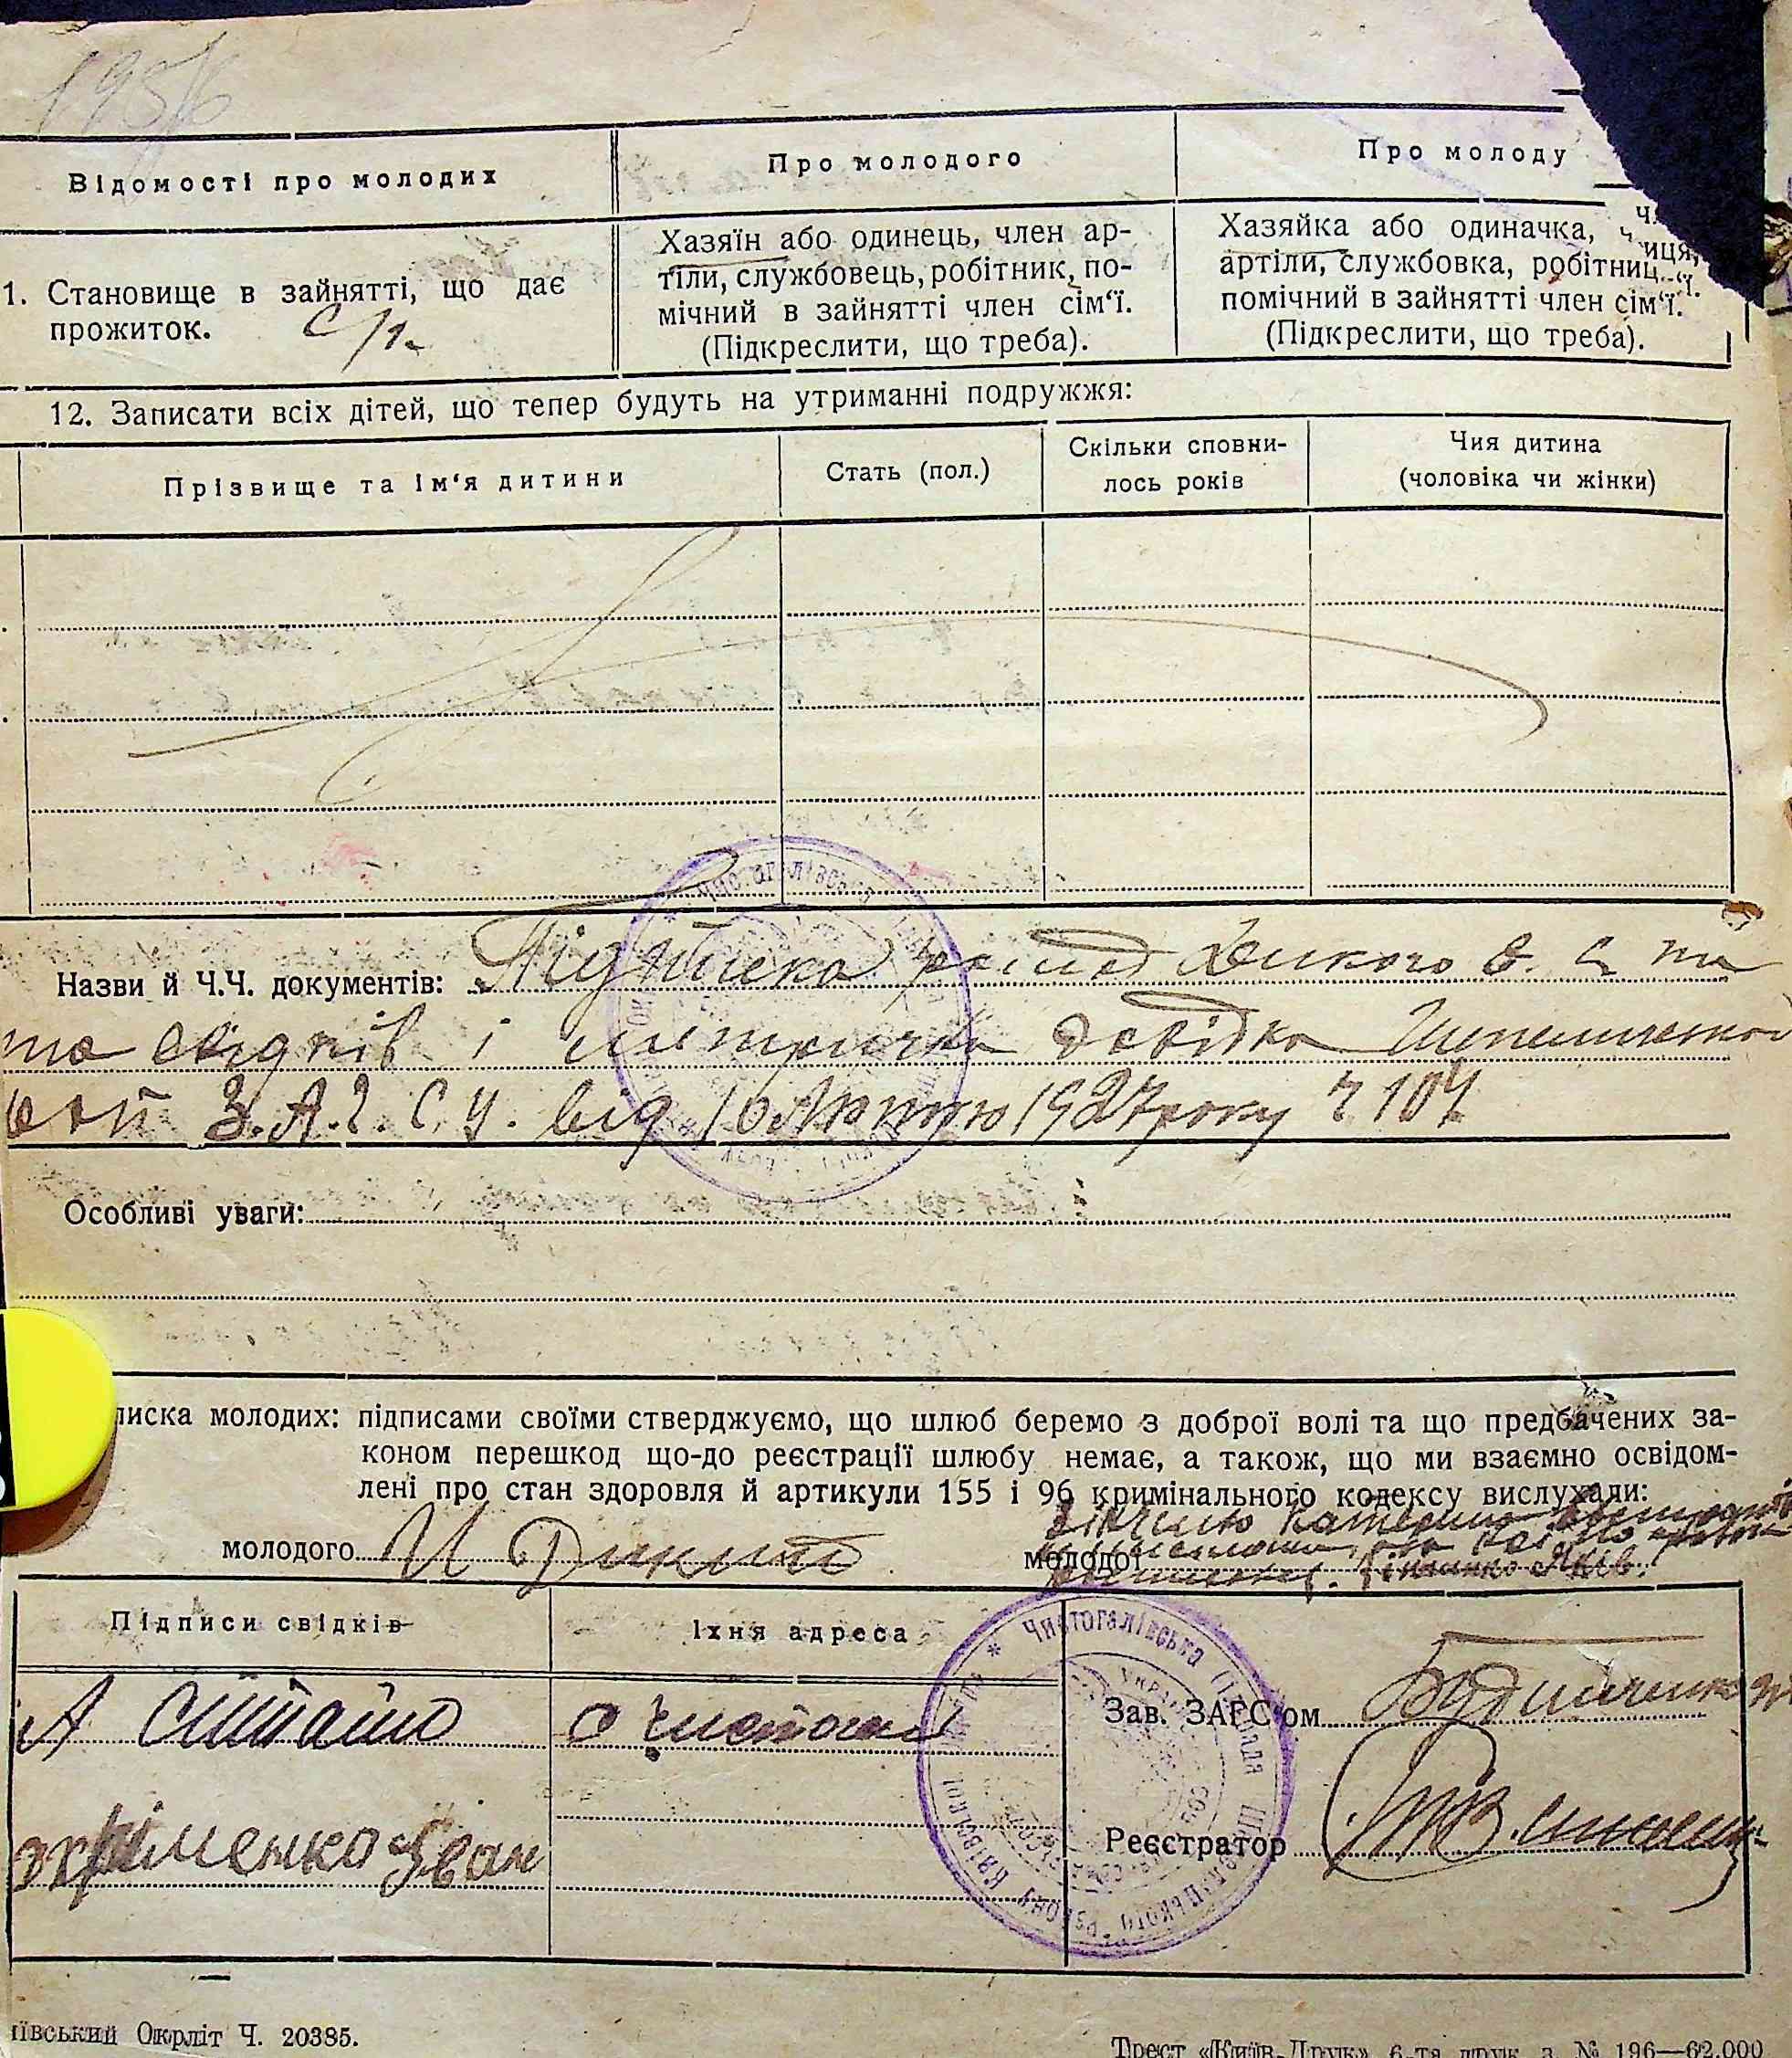 195/6
Відомості про молодих
Про молодого
Про молоду
1. Становище в зайнятті, що дає
прожиток. с/г.
Хазяїн або одинець, член ар-
тіли, службовець, робітник, по-
мічний в зайнятті член сім‘ї.
(Підкреслити, що треба).
Хазяйка або одиначка,
артіли, службовка, робітниця,
помічний в зайнятті член сім‘ї.
(Підкреслити, що треба).
12. Записати всіх дітей, що тепер будуть на утриманні подружжя:
Прізвище та ім‘я дитини
Стать (пол.)
Скільки сповни-
лось років
Чия дитина
(чоловіка чи жінки)
Назви й Ч.Ч. документів: Підписка Дикого
та свідків і метрична довідка
З.А.Г.С.У. від 16 1927 року
Особливі уваги:
писка молодих: підписами своїми стверджуємо, що шлюб беремо з доброї волі та що предбачених за-
коном перешкод що-до реєстрації шлюбу немає, а також, що ми взаємно освідом-
лені про стан здоровля й артикули 155 і 96 кримінального кодексу вислухали:
молодого И Дикий
молодої Катерина Яків.
Підписи свідків
Їхня адреса
Чистогалівська
Київської
Зав. ЗАГС‘ом
Реєстратор
Іван
ївський Окрліт Ч. 20385.
Трест «Київ-Друк» 6-та друк. з. № 196—62.000